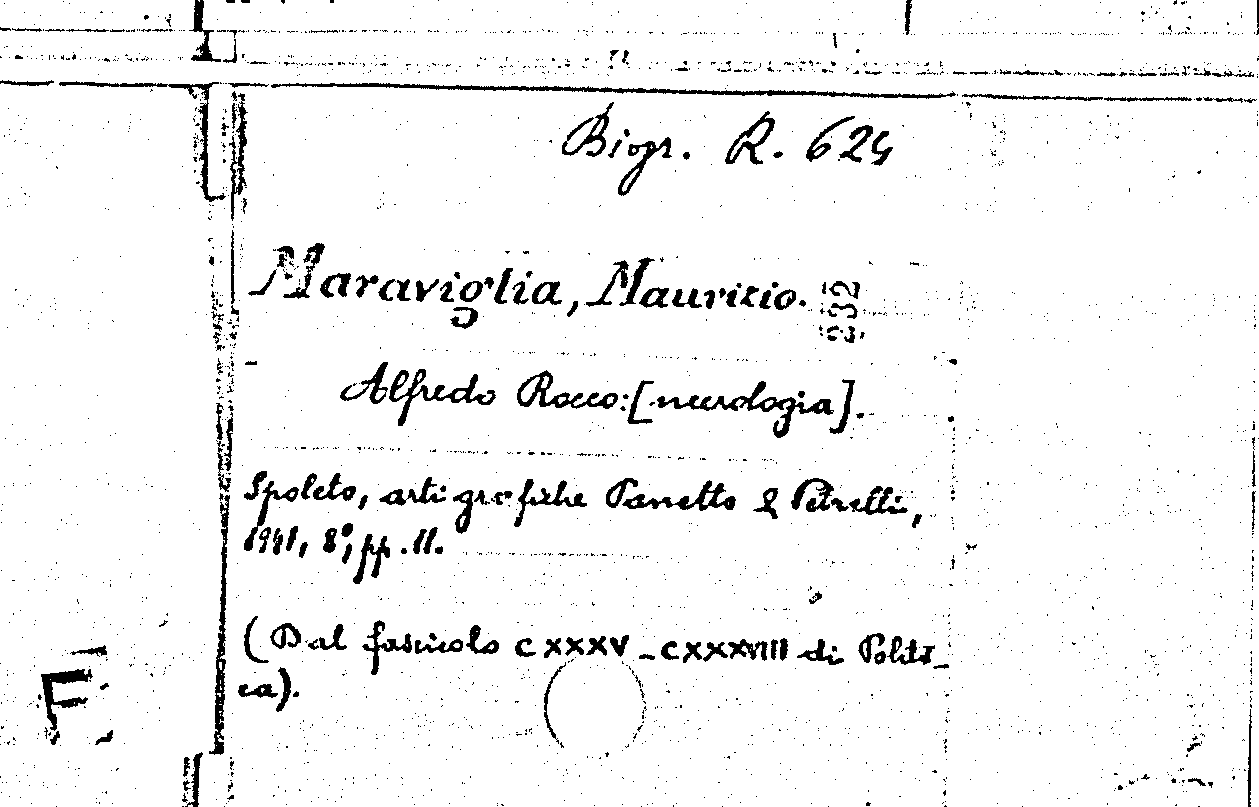 Biogr. R. 624
Maraviglia, Maurizio.
232
Alfredo Rocco: [necrologia].
Spoleto, arti grafiche Panetto & Petrelli,
1941, 8°, pp. 11.
(Dal fascicolo CXXXV-CXXXVIII di Politi-
ca).
F